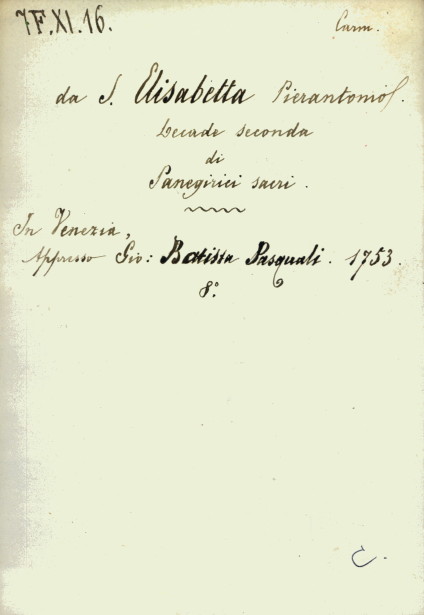 7F.XI.16.
Carm.
da S. Elisabetta Pierantonio.
Decade seconda
di
Panegirici sacri.
In Venezia,
Appresso Gio: Batista Pasquali. 1753.
8°.
C.